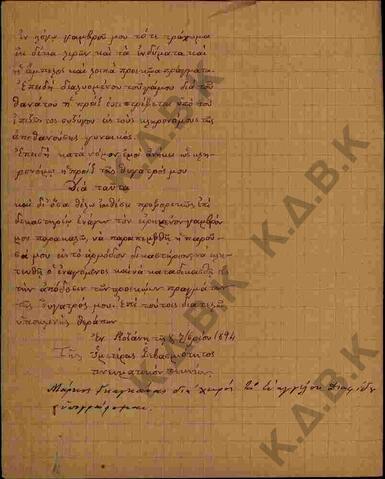 ἐν λόγῳ γαμβροῦ μου τό τε τράχωμα
ἐκ δέκα λιρῶν καὶ τὰ ἐνδύματα καὶ
ἡ ἄμπελος καὶ λοιπὰ προικῶα πράγματα.
Ἐπειδὴ διαλυομένου τοῦ γάμου διὰ τοῦ
θανάτου ἡ προὶξ ἐπιστρέφεται ὑπὸ τοῦ
ἐπιζῶντος συζύγου εἰς τοὺς κληρονόμους τῆς
ἀποθανούσης γυναικός.
Ἐπειδὴ κατὰ νόμον ἐμοὶ ἀνήκει ὡς κλη-
ρονόμῳ ἡ προὶξ τῆς θυγατρός μου
Διὰ ταῦτα
καὶ δι' ὅσα θέλω ἐκθέσει προφορικῶς ἐπὶ
δικαστηρίου ἐνάγων τὸν εἰρημένον γαμβρόν
μου παρακαλῶ, νὰ παραπεμφθῇ ἡ παροῦ-
σά μου εἰς τὸ ἁρμόδιον δικαστήριον, νὰ κλη-
τευθῇ ὁ ἐναγόμενος καὶ νὰ καταδικασθῇ εἰς
τὴν ἀπόδοσιν τῶν προικῴων πραγμάτων
τῆς θυγατρός μου. Ἐπὶ τούτοις διατελῶ
ὑποσημ. θεράπων
Ἐν Κοζάνῃ τῇ 8 1894
Τῆς Ὑμετέρας Σεβασμιότητος
πνευματικὸν τέκνον
Μάρκος διὰ χειρὸς
Κ.Δ.Β.Κ
Κ.Δ.Β.Κ
Κ.Δ.Β.Κ
Κ.Δ.Β.Κ